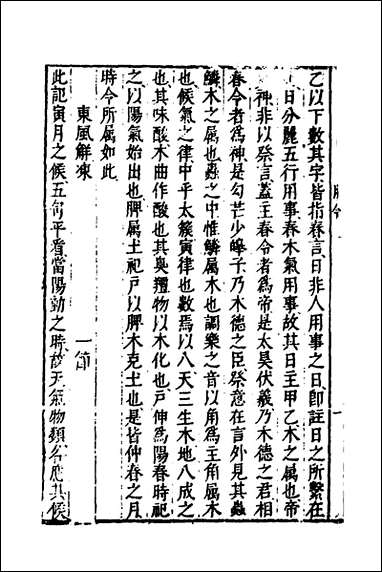 月令
乙以下數其字皆指春言日非人用事之日即註日之所繫在
日分麗五行用事春木氣用事故其日主甲乙木之屬也帝
神非以祭言蓋主春令者為帝是太昊伏羲乃木德之君相
春令者為神是勾芒少皞子乃木德之臣祭意在言外見其蟲
鱗木之屬也蟲之中惟鱗屬木也謂樂之音以角為主角屬木
也候氣之律中乎太簇寅律也數焉以八天三生木地八成之
也其味酸木曲作酸也其臭羶物以木化也戶伸為陽春時祀
之以陽氣始出也脾屬土祀戶以脾木克土也是皆仲春之月
時令所屬如此
東風解凍 一節
此記寅月之候五句平看當陽動之時故天氣物類各應其候